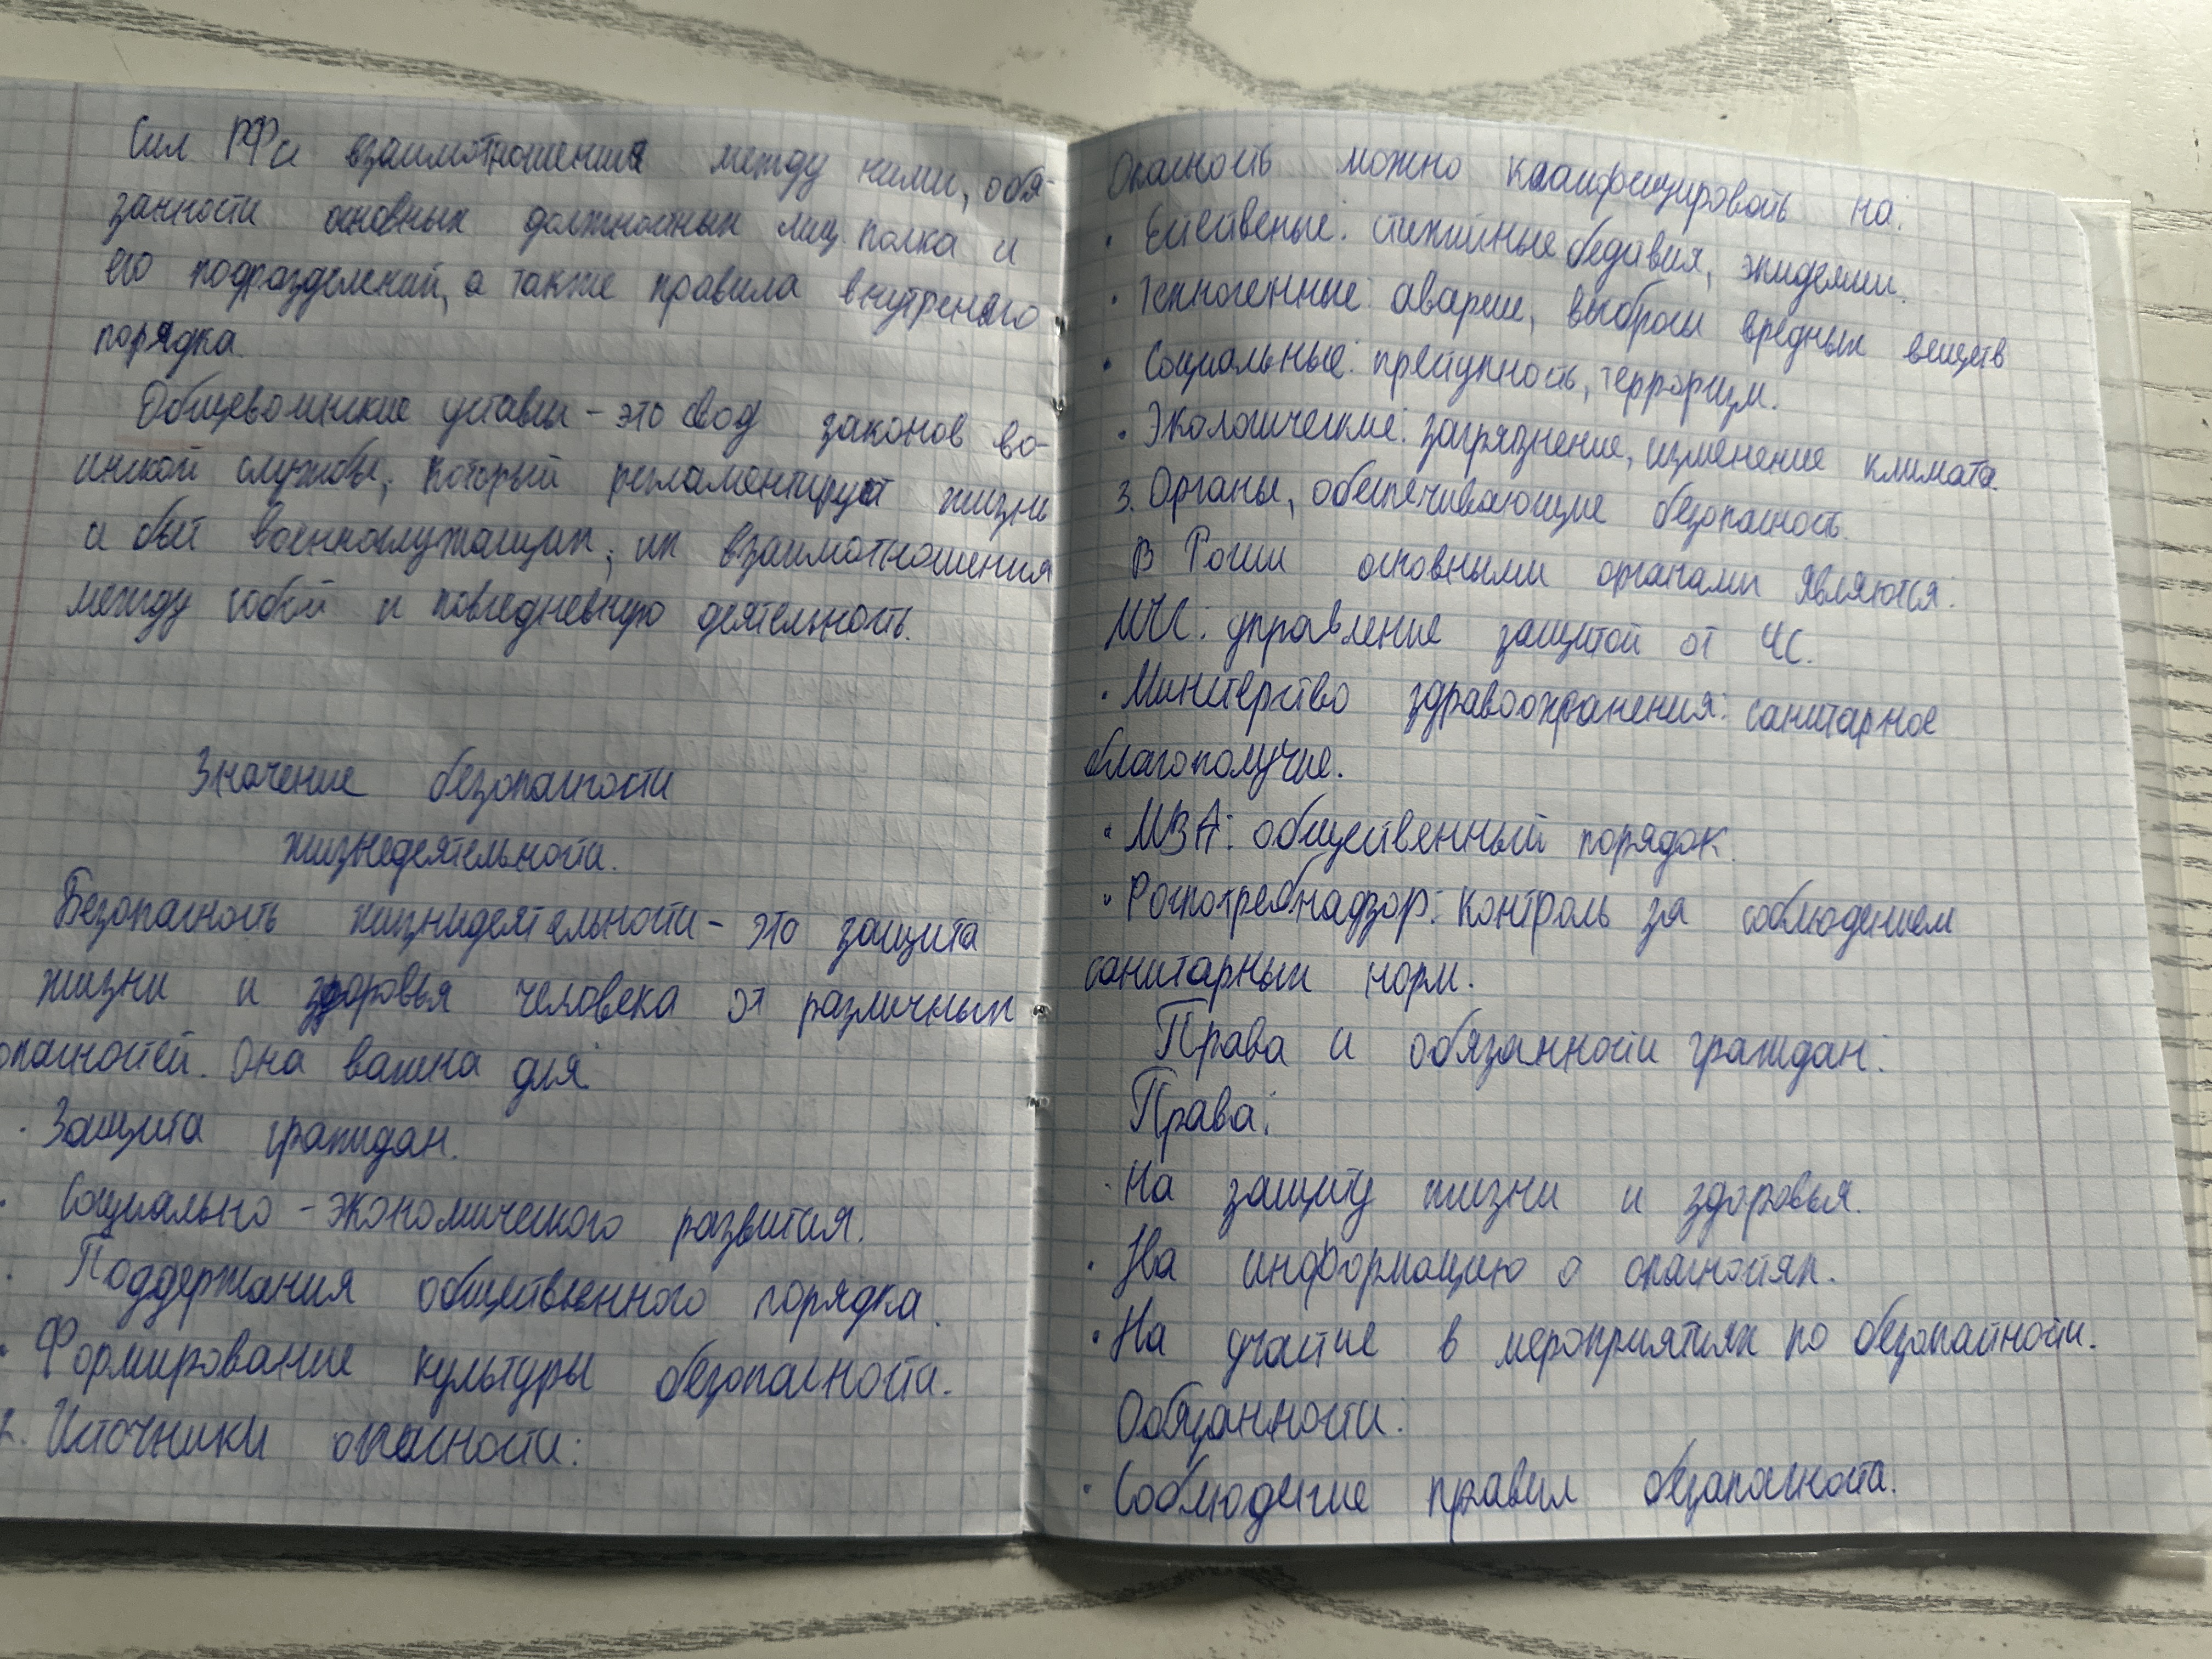 Сил РФ и взаимотношения между ними, обя-
занности основных должностных лиц полка и
его подразделений, а также правила внутренего
порядка.
Общевоинские уставы - это свод законов во-
инской службы, который регламентирует жизнь
и быт военнослужащих, их взаимотношения
между собой и повседневную деятельность.
Значение безопасности
жизнедеятельности.
Безопасность жизнидеятельности - это защита
жизни и здоровья человека от различных
опасностей. Она важна для:
· Защита граждан.
· Социально - экономического развития.
· Поддержания общественного порядка.
· Формирование культуры безопасности.
2. Источники опасности:
Опасность можно клаифицировать на:
· Естественые: стихийные бедствия, эпидемии.
· Техногенные: аварии, выбросы вредных веществ
· Социальные: преступность, терроризм.
· Экологические: загрязнение, изменение климата.
3. Органы, обеспечивающие безопасность.
В России основными органами являются:
МЧС: управление защитой от ЧС.
· Министерство здравоохранения: санитарное
благополучие.
· МВА: общественный порядок.
· Роспотребнадзор: контроль за соблюдением
санитарных норм.
Права и обязанности граждан:
Права:
· На защиту жизни и здоровья.
· На информацию о опасностях.
· На участие в мероприятиях по безопастности.
Обязанности:
· Соблюдение правил безапасности.